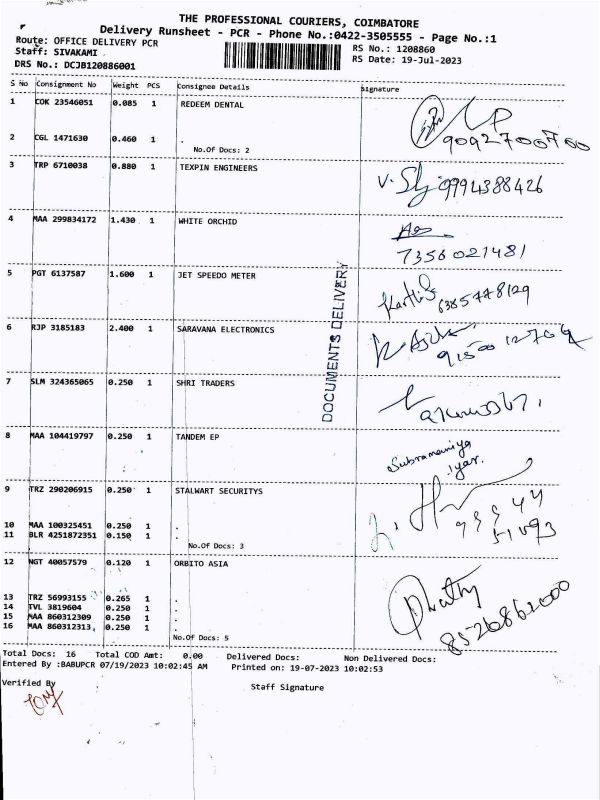 THE PROFESSIONAL COURIERS, COIMBATORE
Delivery Runsheet - PCR - Phone No.:0422-3505555 - Page No.:1
Route: OFFICE DELIVERY PCR
Staff: SIVAKAMI
DRS No.: DCJB120886001
RS No.: 1208860
RS Date: 19-Jul-2023
S No Consignment No Weight PCS Consignee Details Signature
1 COK 23546051 0.085 1 REDEEM DENTAL
2 CGL 1471630 0.460 1 .
No.Of Docs: 2
9092700700
3 TRP 6710038 0.880 1 TEXPIN ENGINEERS
9994388426
4 MAA 299834172 1.430 1 WHITE ORCHID
7356021481
5 PGT 6137587 1.600 1 JET SPEEDO METER
6385778129
6 RJP 3185183 2.400 1 SARAVANA ELECTRONICS
DOCUMENTS DELIVERY
7 SLM 324365065 0.250 1 SHRI TRADERS
8 MAA 104419797 0.250 1 TANDEM EP
Subramaniya
Iyar.
9 TRZ 290206915 0.250 1 STALWART SECURITYS
10 MAA 100325451 0.250 1 .
11 BLR 4251872351 0.150 1 .
No.Of Docs: 3
12 NGT 40057579 0.120 1 ORBITO ASIA
13 TRZ 56993155 0.265 1 .
14 TVL 3819604 0.250 1 .
15 MAA 860312309 0.250 1 .
16 MAA 860312313 0.250 1 .
No.Of Docs: 5
8526862000
Total Docs: 16 Total COD Amt: 0.00 Delivered Docs: Non Delivered Docs:
Entered By :BABUPCR 07/19/2023 10:02:45 AM Printed on: 19-07-2023 10:02:53
Verified By
Staff Signature